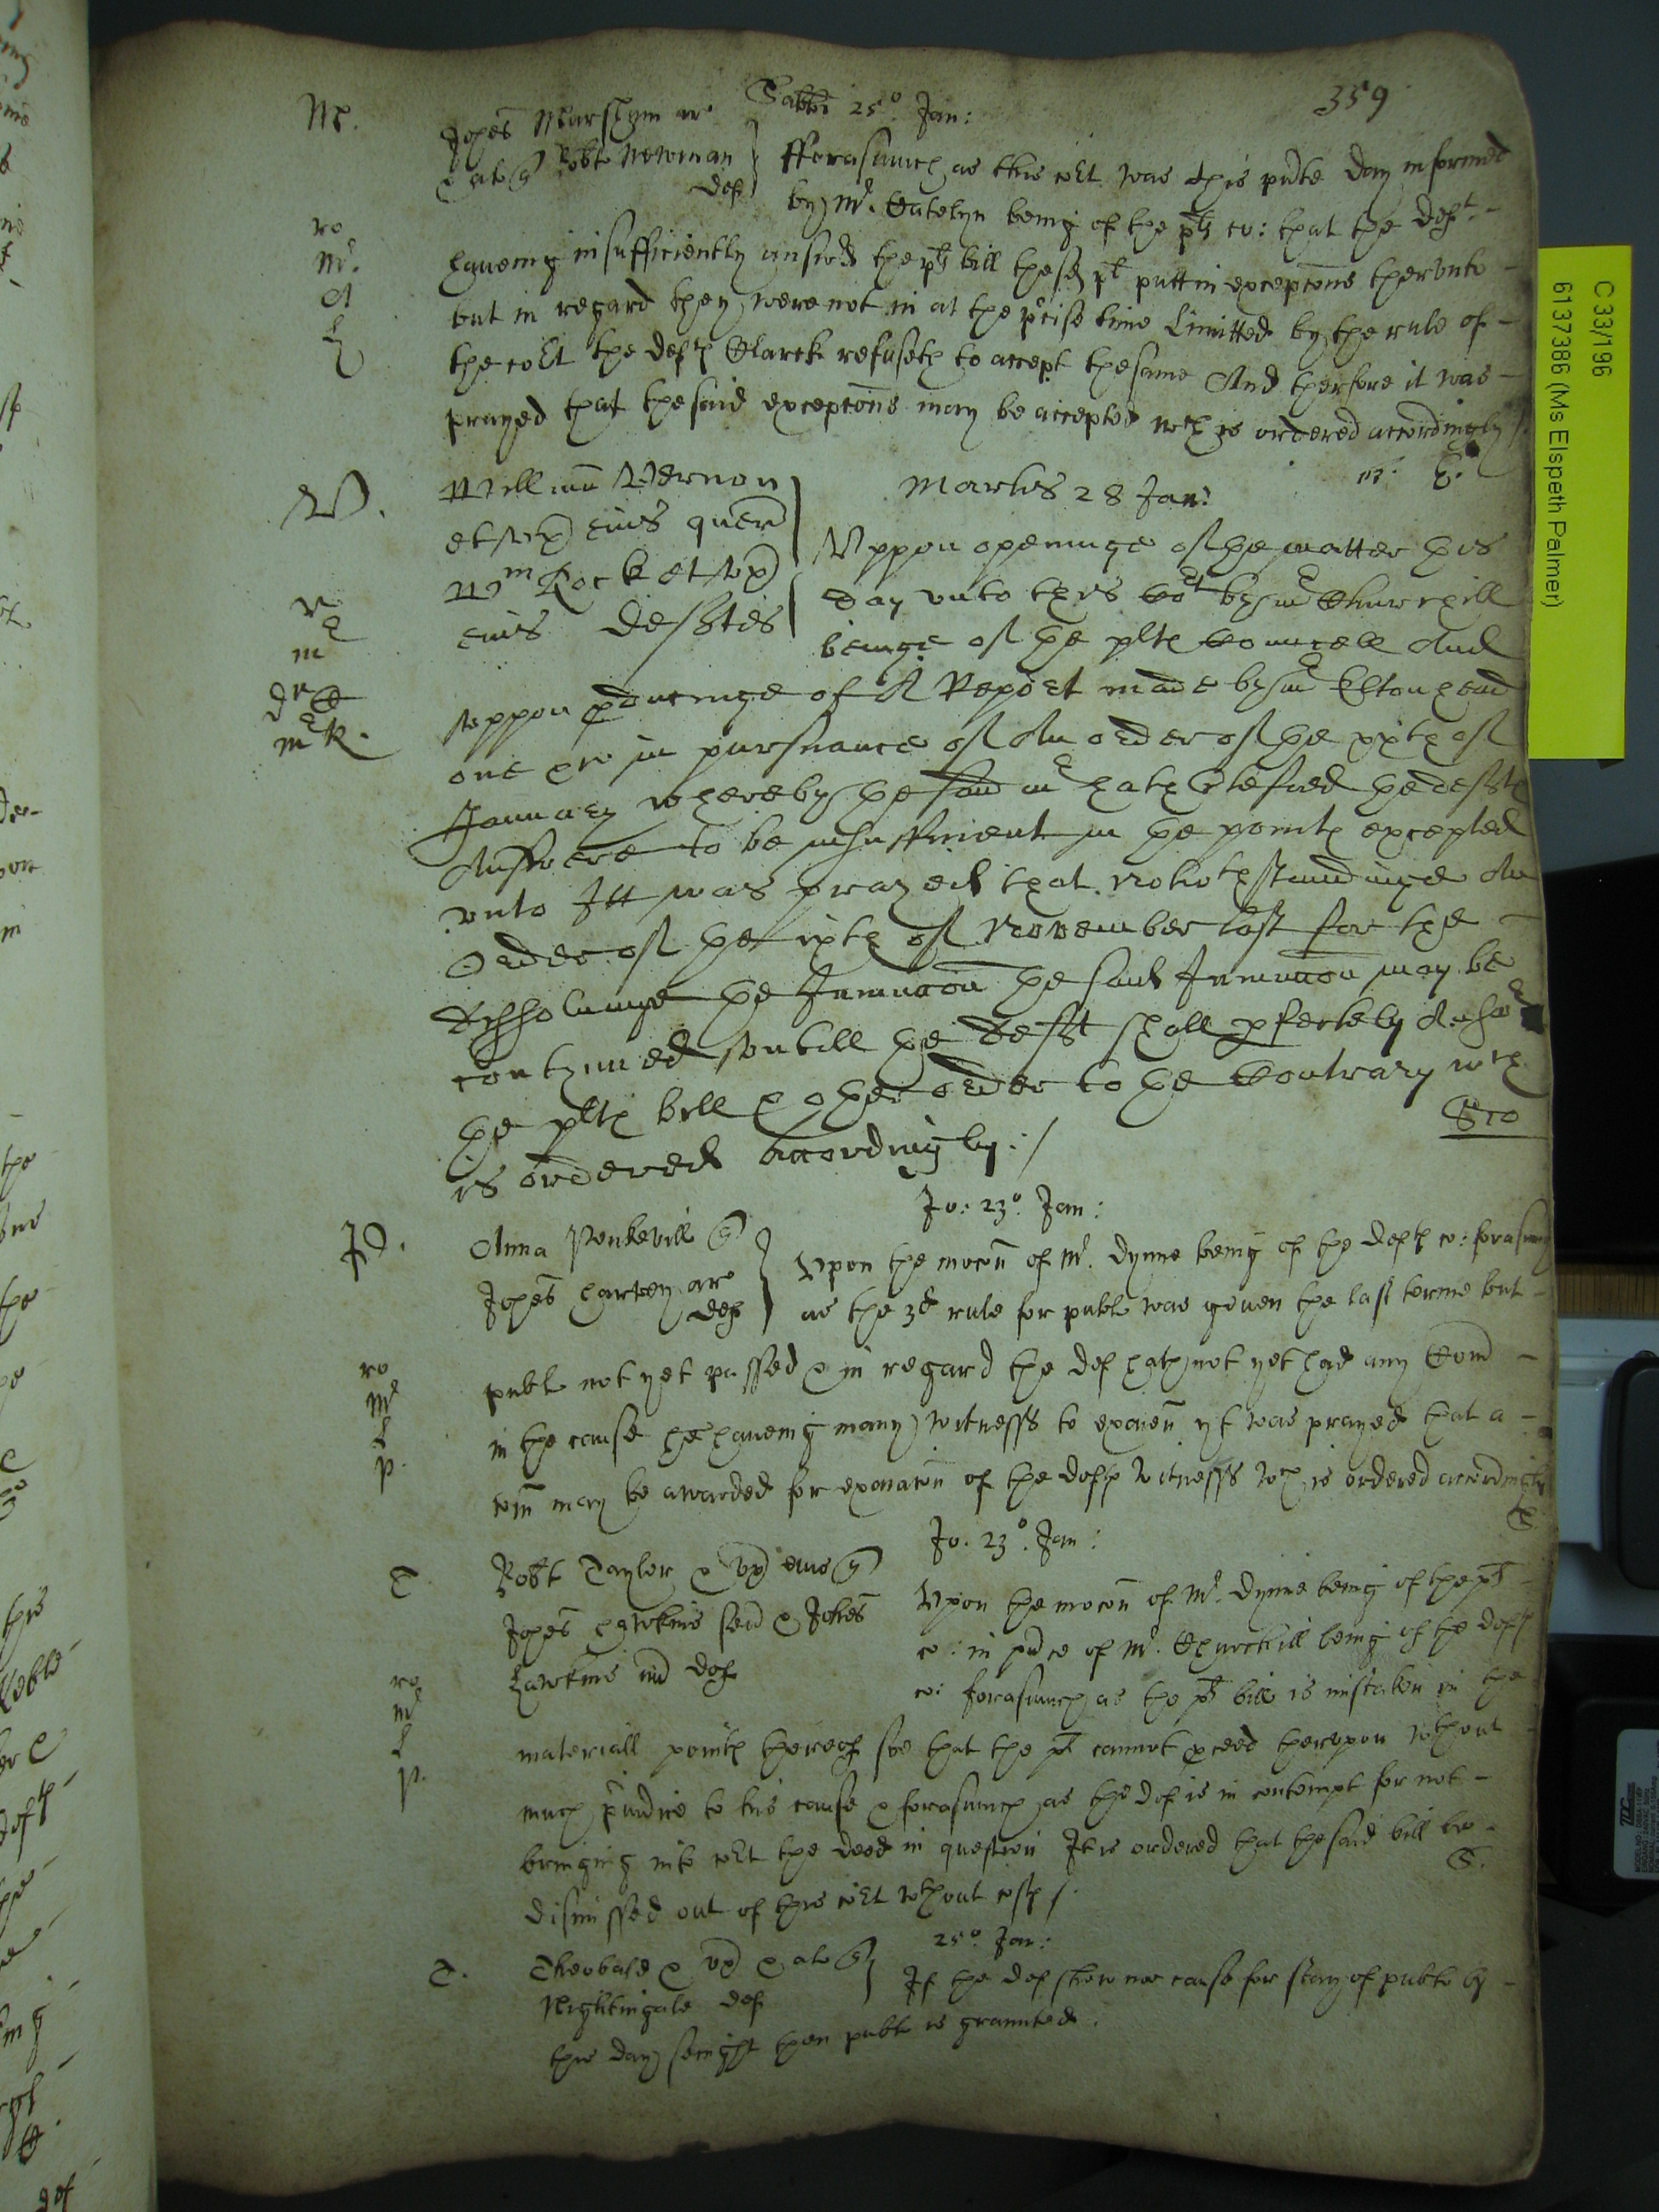 359
Sabbti 25º Jan:
M.
Johes Marsham ar
& al q Robte Newman
def
fforasmuch as this cot was this pnte day informed
by Mr. Catelyn being of the pts co: that the deft -
haveing insufficiently answd the pts bill the sd pt putt in excepcons therunto -
but in regard they were not in at the pcise time Limitted by the rule of -
the cot the defts Clarck refuseth to accept the same And therfore it was -
prayed that the said excepcons may be accepted wch is ordered accordingly /.
W.
William Vernon
et ux eius quer
Wm Rock et ux
eius defttes
Martis 28 Jan:
Uppon openinge of the matter this
day unto this Cot by mr Churchill
beinge of the plts Councell And
uppon pducinge of A Report made by mr Eltonhead
one &c in pursuance of An order of the xxth of
January whereby the said mr hath Certefied the defts
Answere to be insufficient in the points excepted
unto Itt was prayed that Notwthstandinge An
Order of the ixth of November last for the -
dissolvinge the Iniuncon the said Iniuncon may be
contynued untill the deft shall pfectely Answr
the plts bill & other order to the Contrary wch
is ordered Accordingly :/
JO.
Jo: 23º Jan:
Anna q
Johes Harvey ar
def
Upon the mocon of Mr. Dynne being of the defts co: forasmuch
as the 3d rule for publ was geven the last terme but -
publ not yet passed & in regard the def hath not yet had any Comd -
in the cause he haveing many witnesss to exaien yt was prayed that a -
com may be awarded for exaiacon of the defts witnesss wch is ordered accordingly
T.
Jo. 23º. Jan:
Robt Taylor & ux eius q
Johes Hawkins sen & Johes
Hawkins iun def
Upon the mocon of Mr. Dynne being of the pts -
co: in pnce of Mr. Churchill being of the defts
co: forasmuch as the pts bill is mistaken in the
materiall points thereof soe that the pt cannot pceed therupon without -
much piudice to his cause & forasmuch as the def is in contempt for not -
bringing into cot the deed in question It is ordered that the said bill bee -
dismissed out of this cot wthout costs /.
T.
25º. Jan:
Theobald & ux & al q
Nightingale def
If the def shew noe cause for stay of publ by -
this day senight then publ is graunted.
C 33/196
6137386 (Ms Elspeth Palmer)